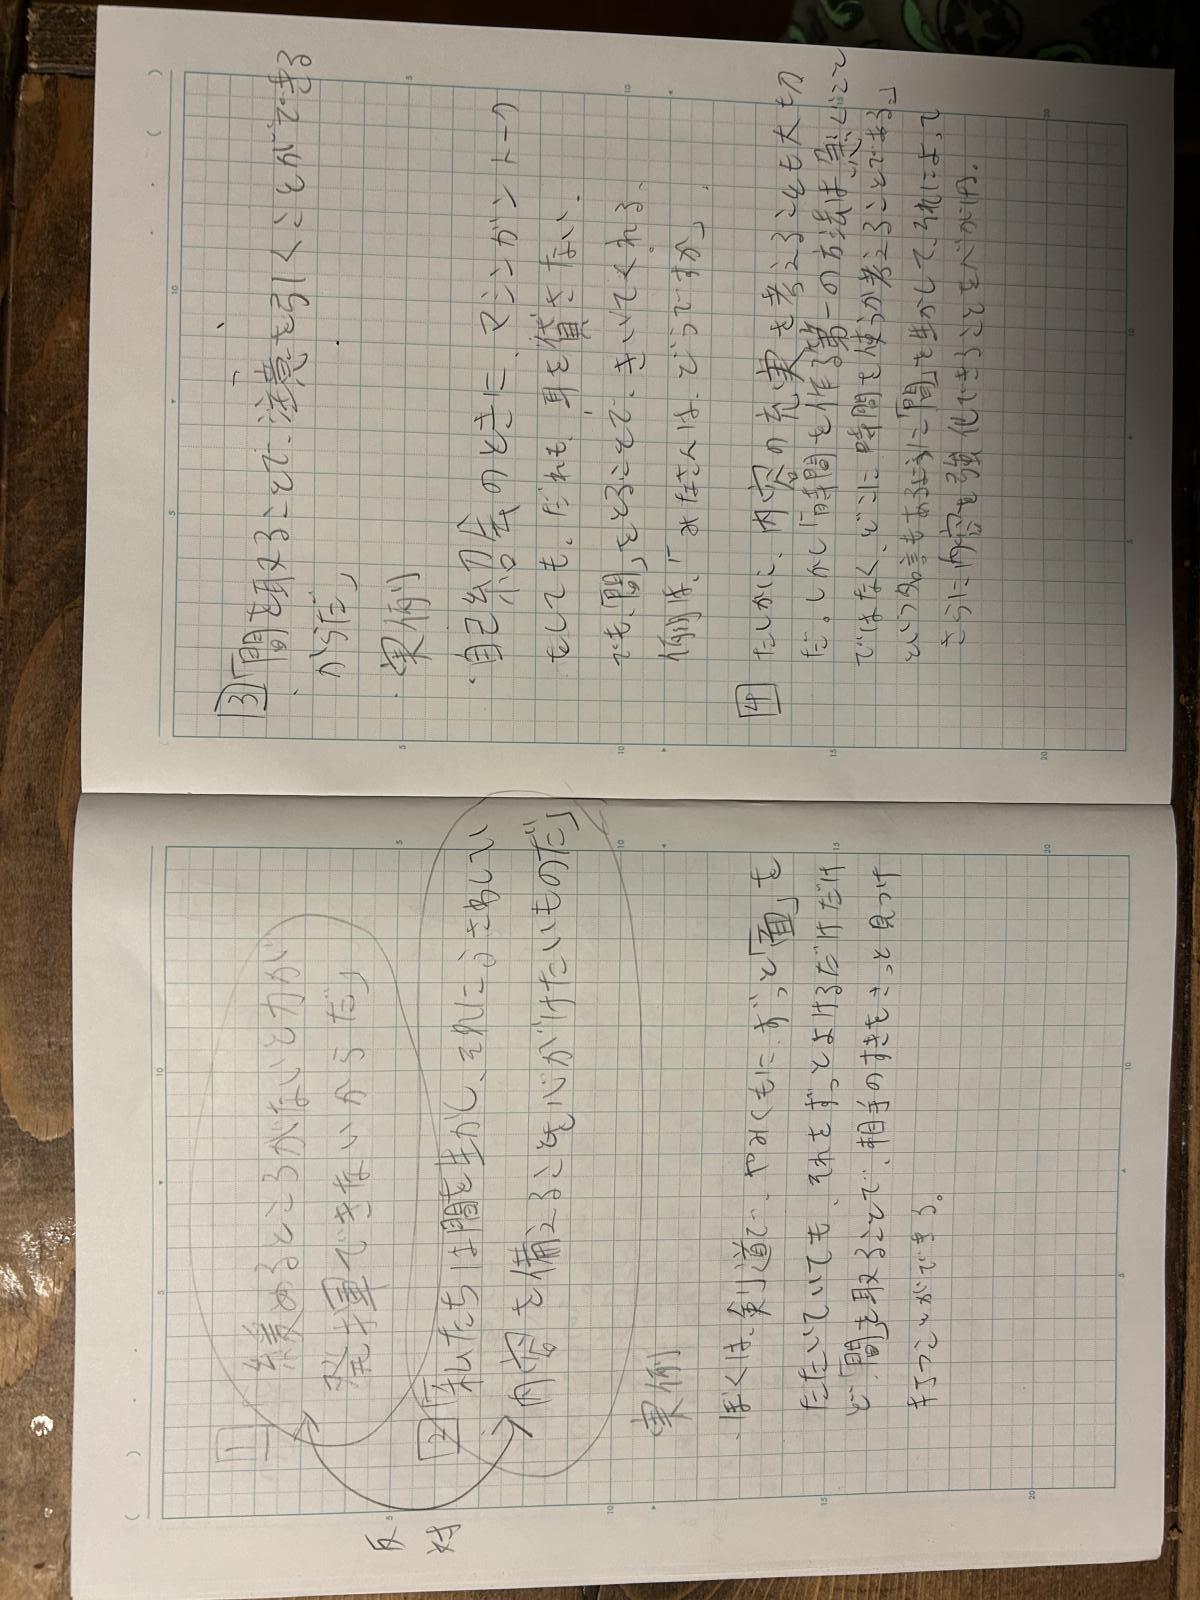 反
対
1
緩めるところがないと力が
発揮できないからだ」
2「私たちは間を生かし、それにふさわしい
内容を備えることを心がけたいものだ」
実例
・ぼくは、剣道で、やみくもに、ずっと「面」を
たたいていても、それをずっとよけるだけだけ
ど「間」を取ることで、相手のすきをさっと見つけ
打つことができる。
3「間を取ることで、注意を引くことができる
からだ」
・実例
・自己紹介のときに、マシンガントーク
をしても、だれも、耳を貸さない、
でも、「間」をとることで、きいてくれる、
例は、「みなさんは、どうですか」
4
たしかに、内容の充実を考えることも大切
だ。しかし「時間を作る第一の方法は急ぐこと
ではなく、どこに時間を使うか考えることである」
という名言もあるように「間」を生かしてそれによって
さらに内容も強化できることをべきだ。